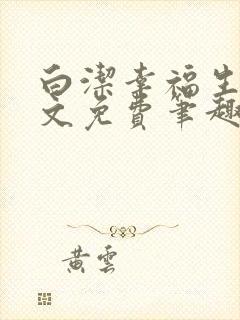 白潔幸福生
文免費筆趣
黃雲